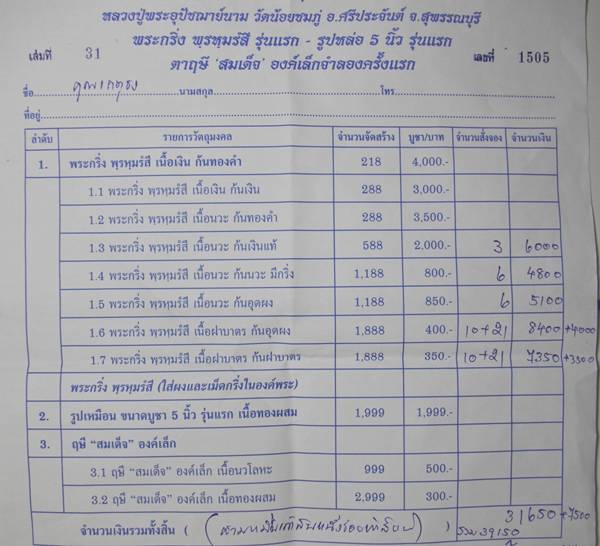 หลวงปู่พระอุปัชฌาย์นาม วัดน้อยชมภู่ อ.ศรีประจันต์ จ.สุพรรณบุรี
เล่มที่ 31 พระกริ่ง พฺรหฺมรํสี รุ่นแรก - รูปหล่อ 5 นิ้ว รุ่นแรก เลขที่ 1505
ตาฤษี 'สมเด็จ' องค์เล็กจำลองครั้งแรก
ชื่อ นามสกุล โทร
ที่อยู่
ลำดับ รายการวัตถุมงคล จำนวนจัดสร้าง บูชา/บาท จำนวนสั่งจอง จำนวนเงิน
1. พระกริ่ง พฺรหฺมรํสี เนื้อเงิน ก้นทองคำ 218 4,000.-
1.1 พระกริ่ง พฺรหฺมรํสี เนื้อเงิน ก้นเงิน 288 3,000.-
1.2 พระกริ่ง พฺรหฺมรํสี เนื้อนวะ ก้นทองคำ 288 3,500.-
1.3 พระกริ่ง พฺรหฺมรํสี เนื้อนวะ ก้นเงินแท้ 588 2,000.- 3 6000
1.4 พระกริ่ง พฺรหฺมรํสี เนื้อนวะ ก้นนวะ มีกริ่ง 1,188 800.- 6 4800
1.5 พระกริ่ง พฺรหฺมรํสี เนื้อนวะ ก้นอุดผง 1,188 850.- 6 5100
1.6 พระกริ่ง พฺรหฺมรํสี เนื้อฝาบาตร ก้นอุดผง 1,888 400.- 10+21 8400+4000
1.7 พระกริ่ง พฺรหฺมรํสี เนื้อฝาบาตร ก้นฝาบาตร 1,888 350.- 10+21 7350+3500
พระกริ่ง พฺรหฺมรํสี (ใส่ผงและเม็ดกริ่งในองค์พระ)
2. รูปเหมือน ขนาดบูชา 5 นิ้ว รุ่นแรก เนื้อทองผสม 1,999 1,999.-
3. ฤษี "สมเด็จ" องค์เล็ก
3.1 ฤษี "สมเด็จ" องค์เล็ก เนื้อนวโลหะ 999 500.-
3.2 ฤษี "สมเด็จ" องค์เล็ก เนื้อทองผสม 2,999 300.-
31650+7500
จำนวนเงินรวมทั้งสิ้น ( ) รวม 39150